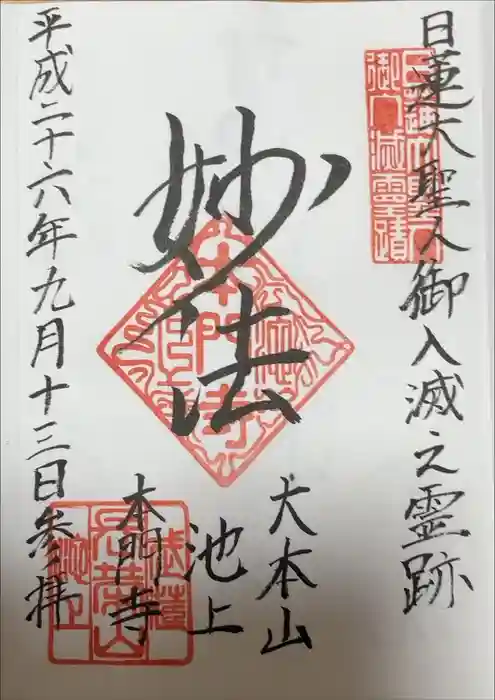 日蓮大聖人御入滅之霊跡
妙法
大本山
池上
本門寺
平成二十六年九月十三日参拝